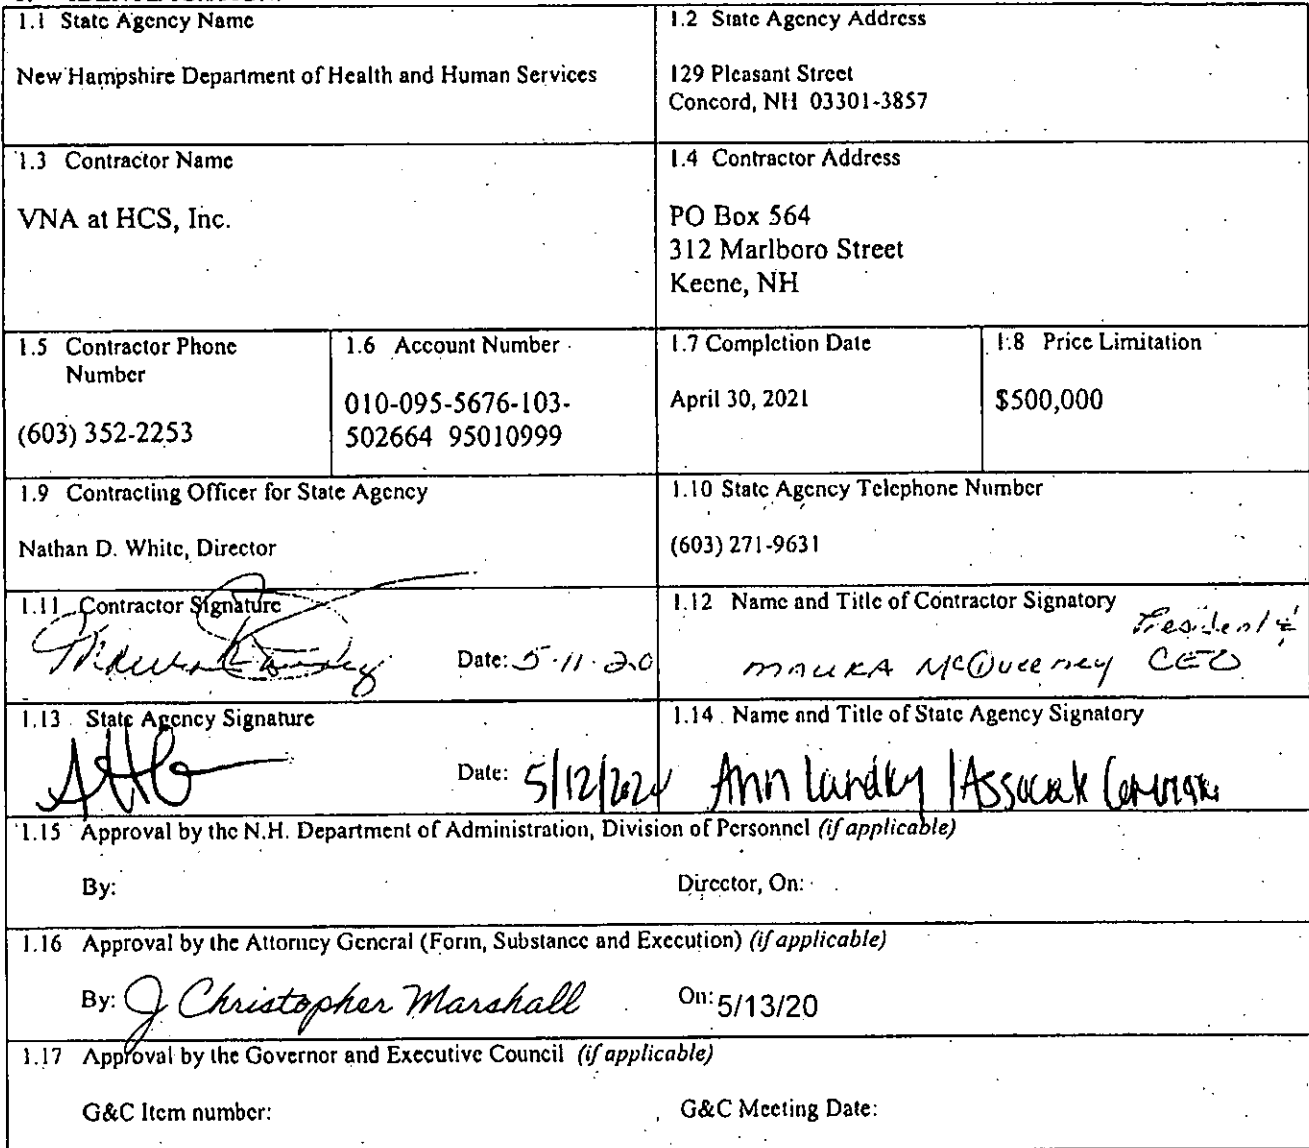 1.1 State Agency Name
New Hampshire Department of Health and Human Services
1.2 State Agency Address
129 Pleasant Street
Concord, NH 03301-3857
1.3 Contractor Name
VNA at HCS, Inc.
1.4 Contractor Address
PO Box 564
312 Marlboro Street
Keene, NH
1.5 Contractor Phone
Number
(603) 352-2253
1.6 Account Number
010-095-5676-103-
502664 95010999
1.7 Completion Date
April 30, 2021
1.8 Price Limitation
$500,000
1.9 Contracting Officer for State Agency
Nathan D. White, Director
1.10 State Agency Telephone Number
(603) 271-9631
1.11 Contractor Signature
Date: 5.11.20
1.12 Name and Title of Contractor Signatory
President &
MAURA McQueeney CEO
1.13 State Agency Signature
Date: 5/12/2020
1.14 Name and Title of State Agency Signatory
Ann Landry
1.15 Approval by the N.H. Department of Administration, Division of Personnel (if applicable)
By: Director, On:
1.16 Approval by the Attorney General (Form, Substance and Execution) (if applicable)
By: J Christopher Marshall On: 5/13/20
1.17 Approval by the Governor and Executive Council (if applicable)
G&C Item number: G&C Meeting Date: